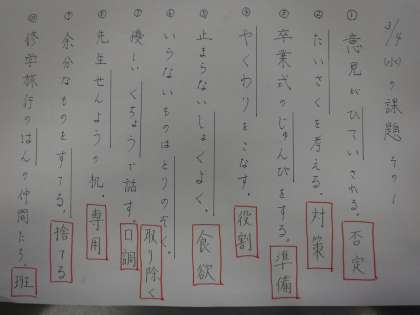 3/4(水)の課題 その1
① 意見がひていされる。 否定
② たいさくを考える。 対策
③ 卒業式のじゅんびをする。 準備
④ やくわりをこなす。 役割
⑤ 止まらないしょくよく。 食欲
⑥ いらないものはとりのぞく。 取り除く
⑦ 優しいくちょうで話す。 口調
⑧ 先生せんようの机。 専用
⑨ 余分なものをすてる。 捨てる
⑩ 修学旅行のはんの仲間たち。 班